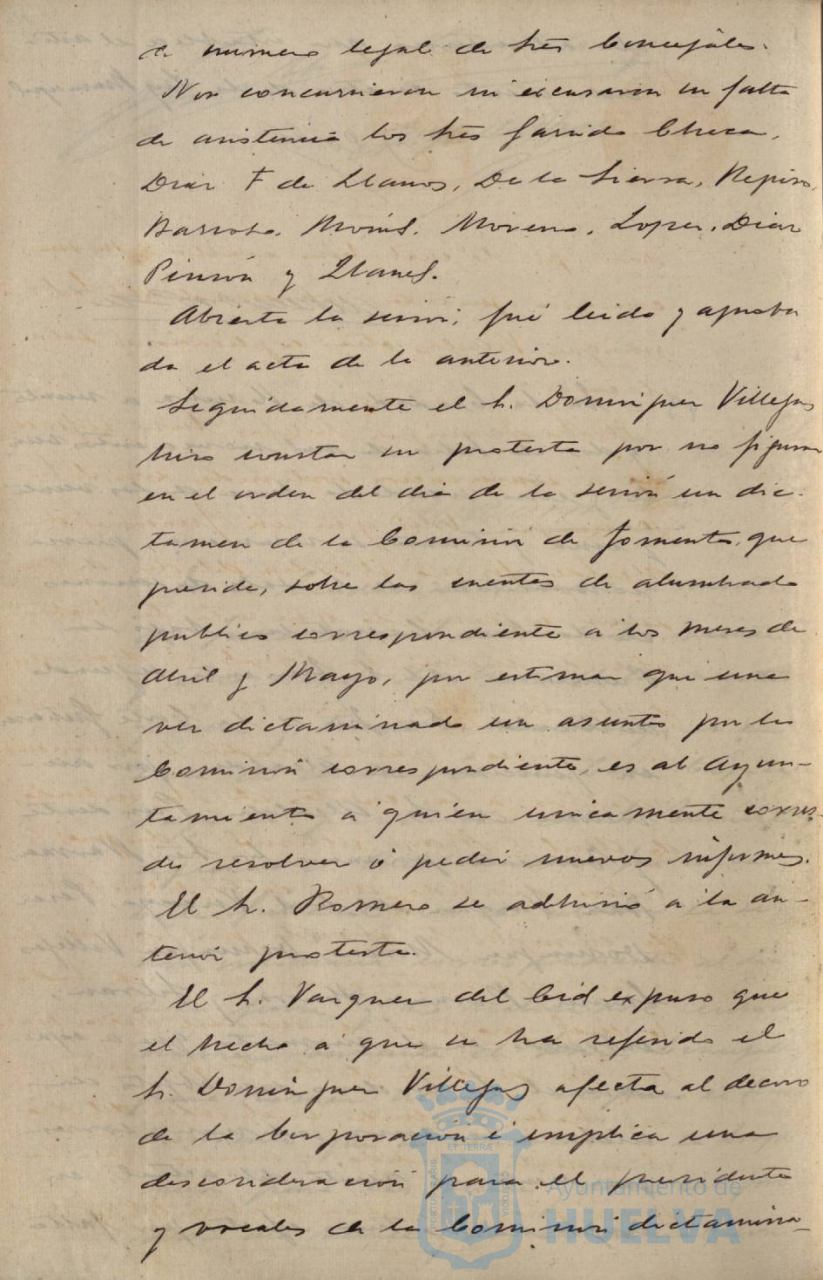 de número legal de tres Concejales.
Non concurrieron ni excusaron su falta
de asistencia los Sres Garrido Checa,
Diaz F de Llanos, De la Sierra, Repiso,
Barroso, Moreno, Lopez, Diaz
Pinzón y Llanes.
Abierta la sesion, fué leida y aproba
da el acta de la anterior.
Seguidamente el Sr. Dominguez Villegas
hizo constar su protesta por no figurar
en el orden del dia de la sesión un dic-
tamen de la Comisión de Fomento, que
preside, sobre las cuentas de alumbrado
publico correspondiente a los meses de
Abril y Mayo, por estimar que una
vez dictaminado un asunto por la
Comisión correspondiente, es al Ayun-
tamiento a quien unicamente
de resolver ó pedir nuevos informes.
El Sr. Romero se adhirió a la an-
terior protesta.
El Sr. Vazquez del Cid expuso que
el hecho a que se ha referido el
Sr. Dominguez Villegas afecta al decoro
de la Corporación é implica una
desconsideración para el presidente
y vocales de la Comision dictamina-
Ayuntamiento de
HUELVA